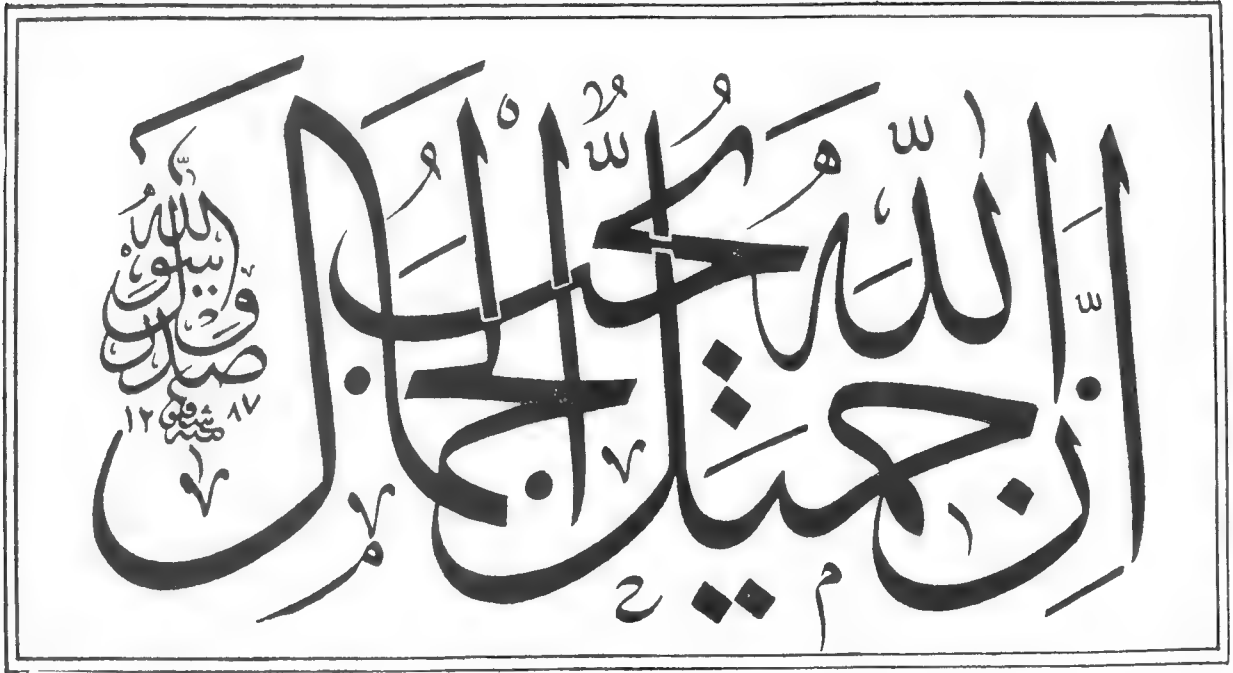 إن الله جميل يحب الجمال
صدق رسول الله
شفيق
١٢٨٧